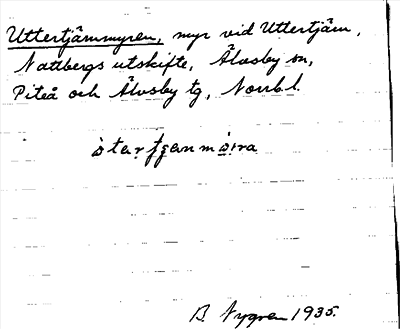 Uttertjärnmyren, myr vid Uttertjärn,
Nattbergs utskifte, Älvsby sn,
Piteå och Älvsby tg, Norrb. l.
B. Nygren 1935.